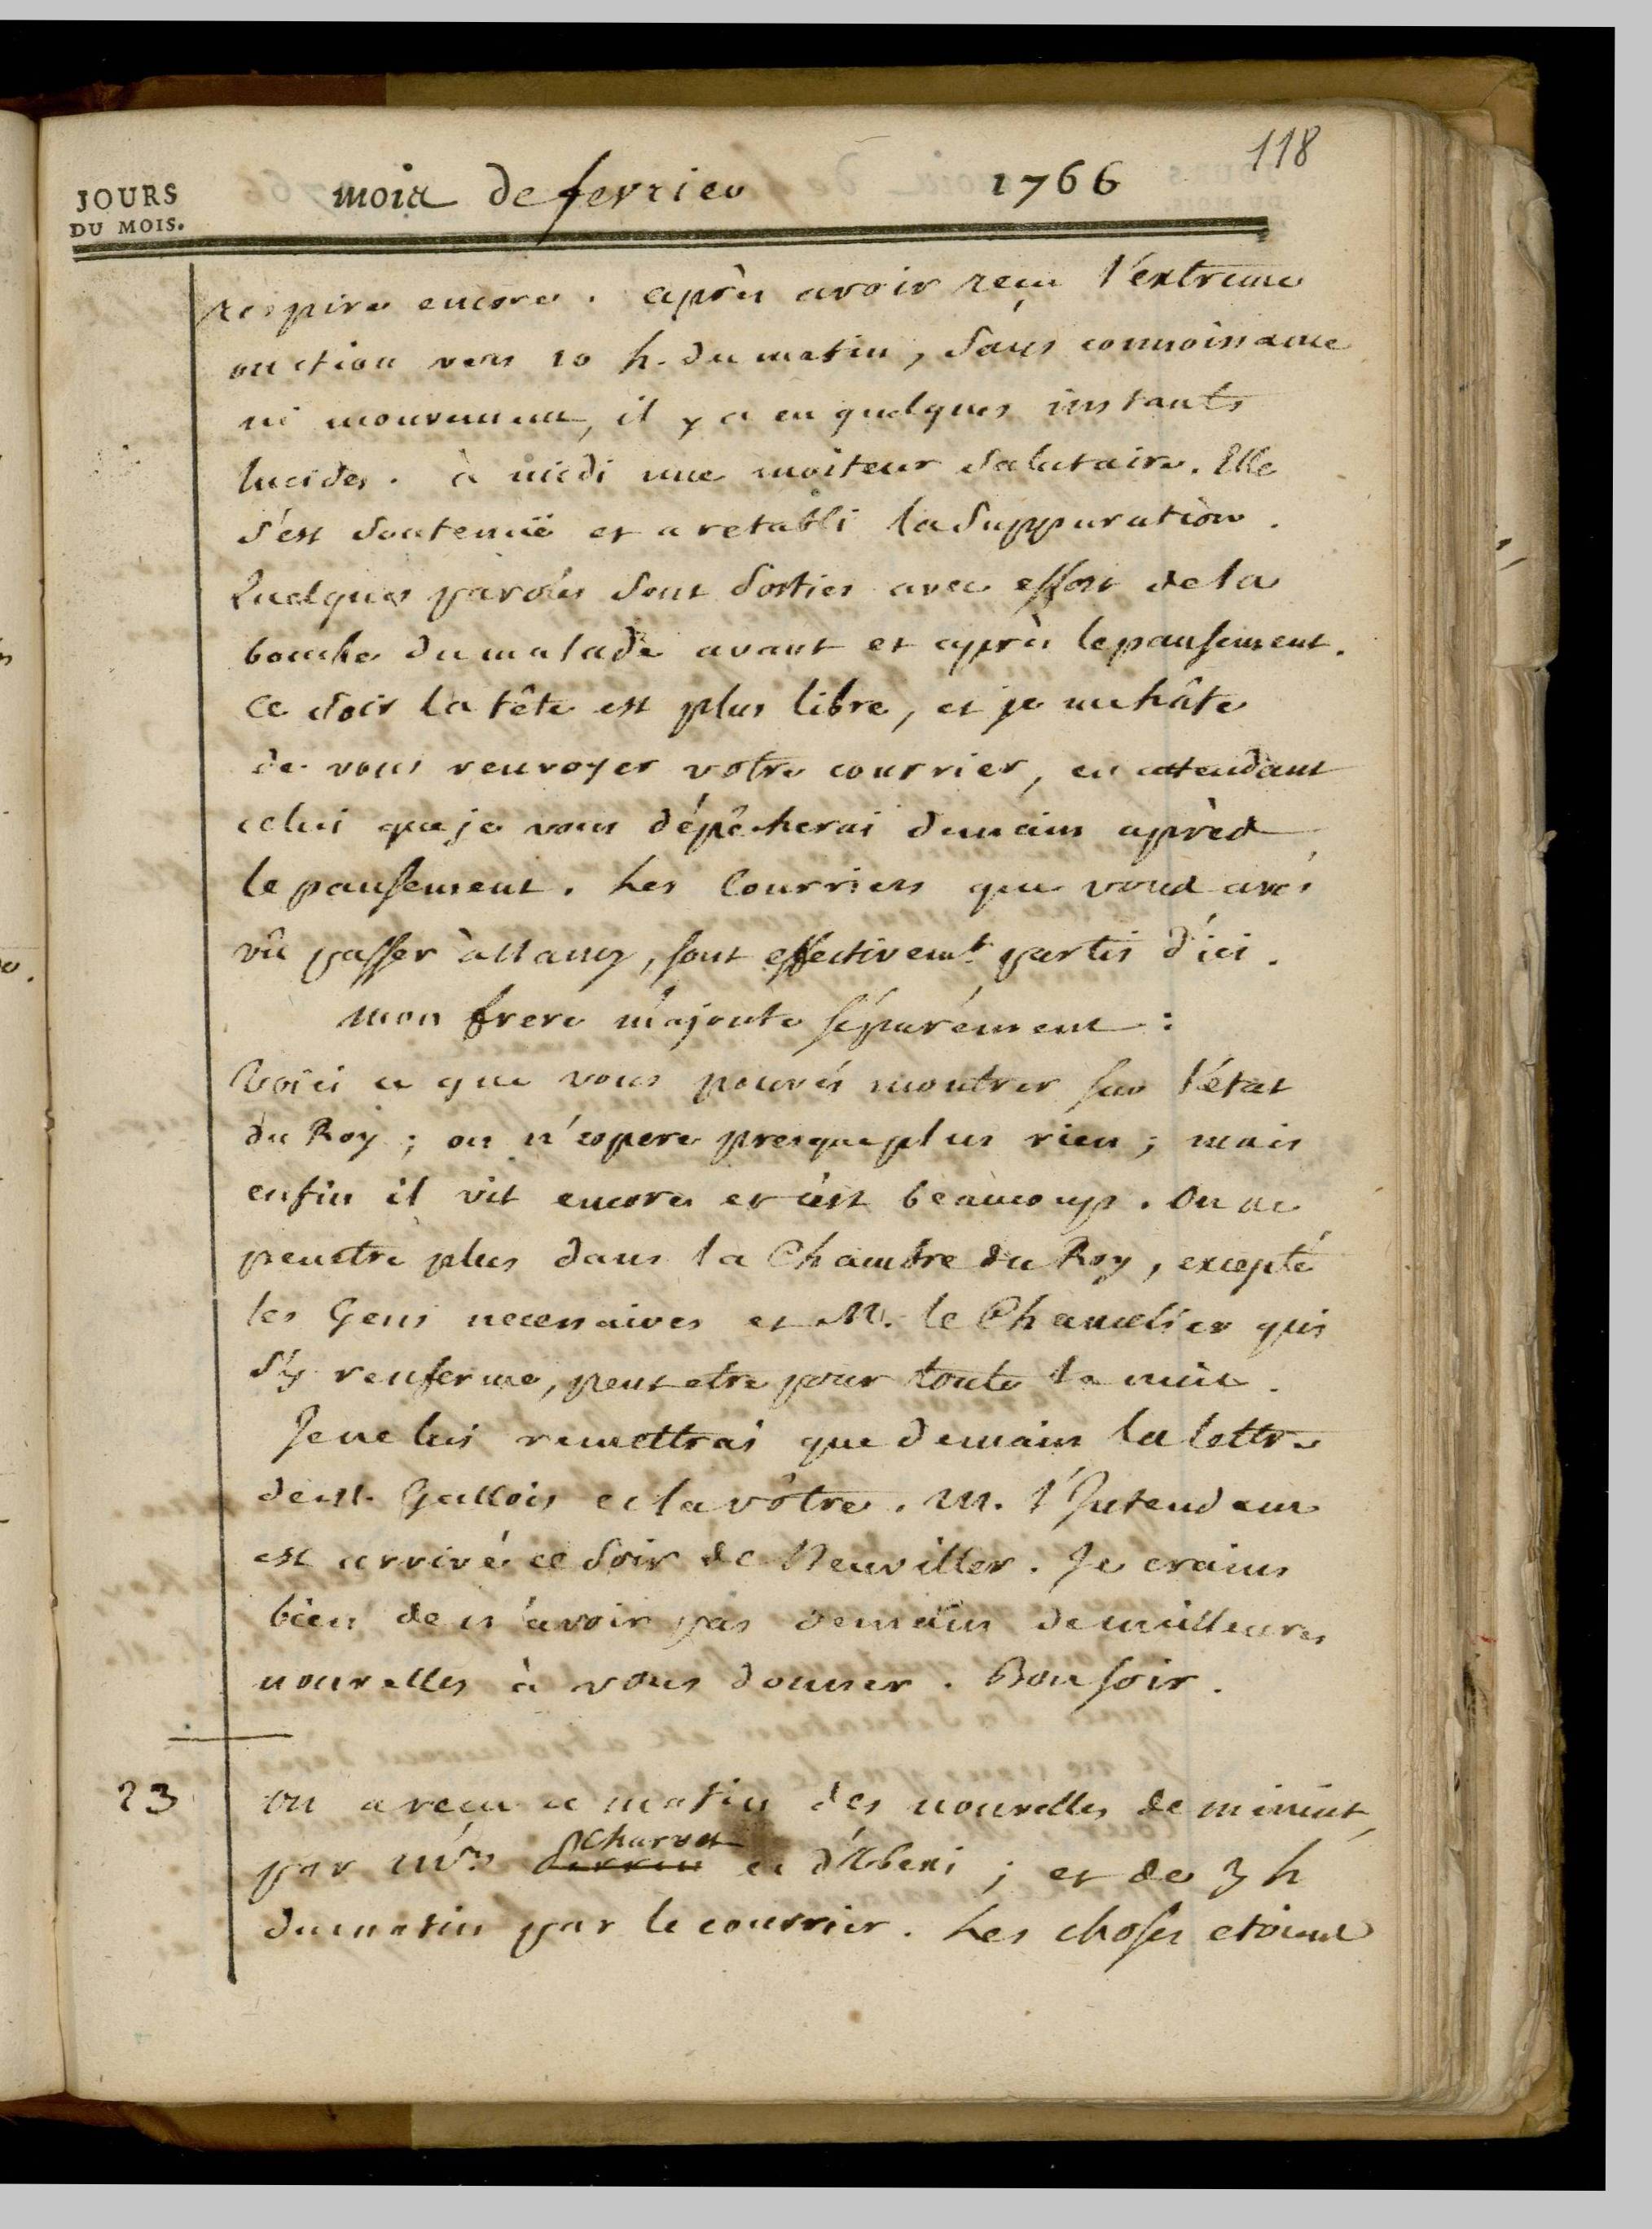 118
JOURS
DU MOIS.
mois de fevrier 1766
respire encore. après avoir reçu l'extreme
onction vers 10 h. du matin, sans connoissance
ni mouvement, il y a eu quelques instants
lucides. à midi une moiteur salutaire. Elle
s'est soutenuë et a retabli la suppuration.
Quelques paroles sont sorties avec effort de la
bouche du malade avant et après le pansement.
ce soir la tête est plus libre, et je me hâte
de vous renvoyer votre courrier, en attendant
celui que je vous dépêcherai demain après
le pansement. Les Courriers que vous avés
vû passer à Nancy, sont effectivemt. partis d'ici.
mon frere m'ajoute séparément :
Voici ce que vous pouvés montrer sur l'état
du Roy ; on n'espere presque plus rien ; mais
enfin il vit encore et c'est beaucoup. On ne
penetre plus dans la Chambre du Roy, excepté
les Gens necessaires et M. le Chancelier qui
s'y renferme, peut etre pour toute la nuit.
Je ne lui remettrai que demain la lettre
de M. Gallois et la vôtre. M. l'Intendant
est arrivé ce soir de Neuviller. Je crains
bien de n'avoir pas demain de meilleures
nouvelles à vous donner. Bon soir.
23 on a reçu ce matin des nouvelles de minuit,
Charvet
par Mrs et d'Alberi ; et de 3 h
du matin par le courrier. Les choses etoient